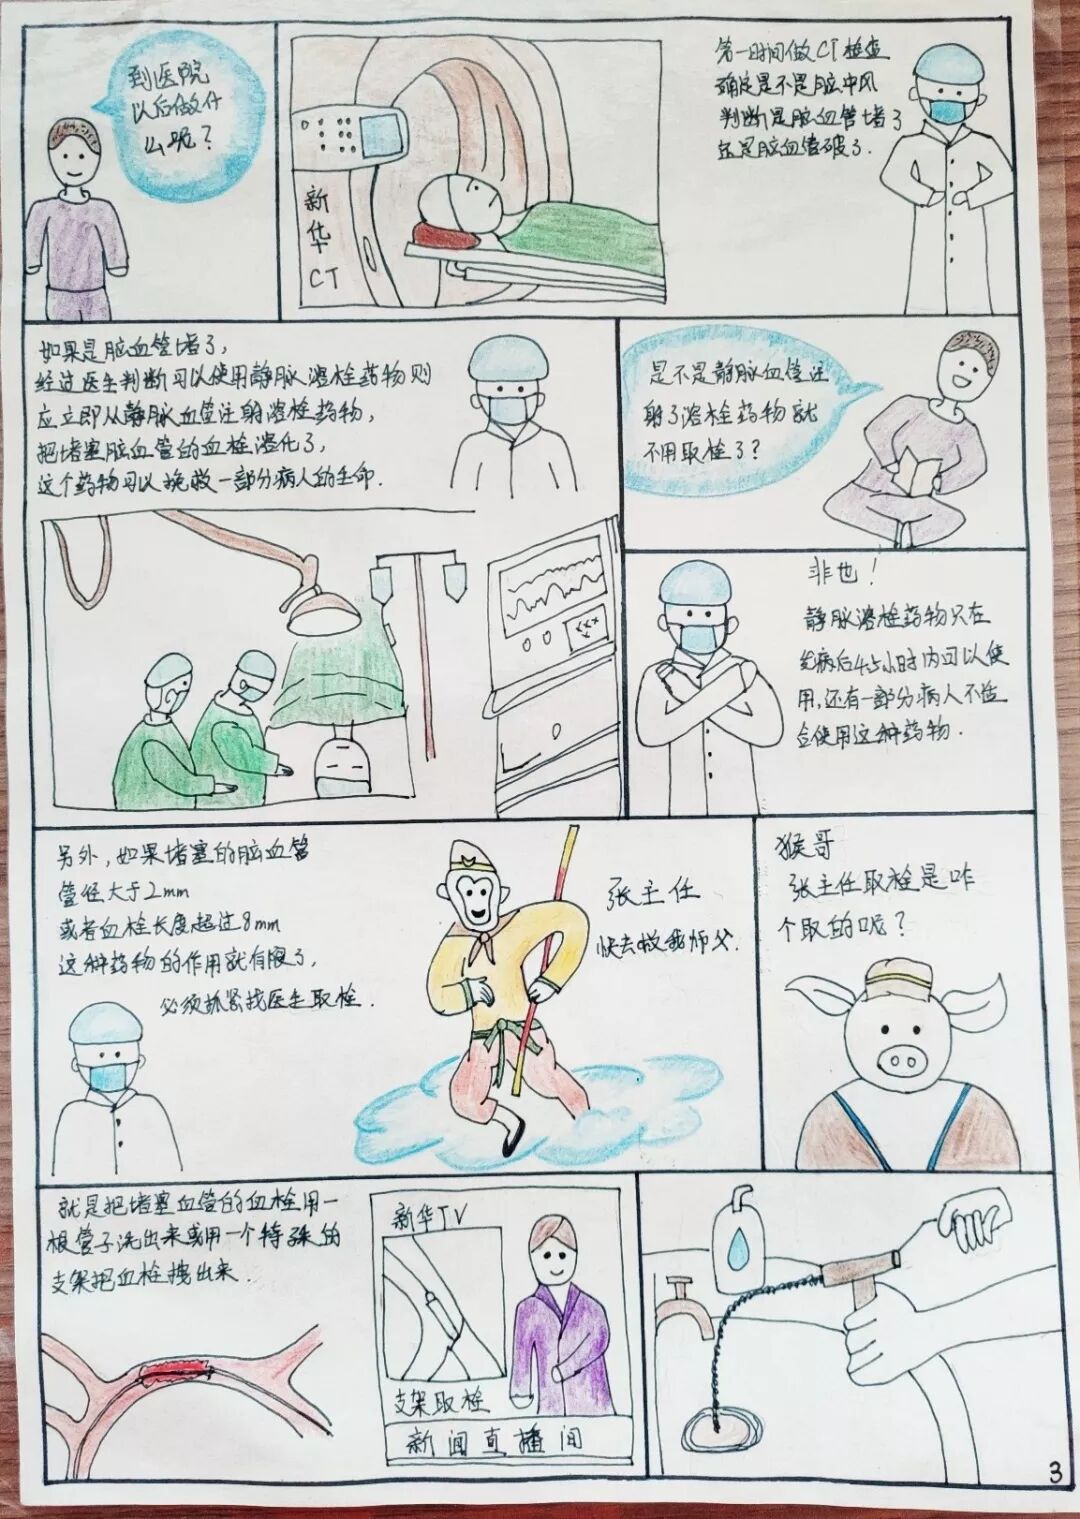 到医院
以后做什
么呢？
新
华
CT
第一时间做CT检查
确定是不是脑中风
判断是脑血管堵了
还是脑血管破了.
如果是脑血管堵了，
经过医生判断可以使用静脉溶栓药物则
应立即从静脉血管注射溶栓药物，
把堵塞脑血管的血栓溶化了，
这个药物可以挽救一部分病人的生命.
是不是静脉血管注
射了溶栓药物就
不用取栓了？
非也！
静脉溶栓药物只在
发病后4.5小时内可以使
用，还有一部分病人不适
合使用这种药物.
另外，如果堵塞的脑血管
管径大于2mm
或者血栓长度超过8mm
这种药物的作用就有限了，
必须抓紧找医生取栓.
张主任
快去救我师父.
猴哥
张主任取栓是咋
个取的呢？
就是把堵塞血管的血栓用一
根管子洗出来或用一个特殊的
支架把血栓拽出来.
新华TV
支架取栓
新闻直播间
3